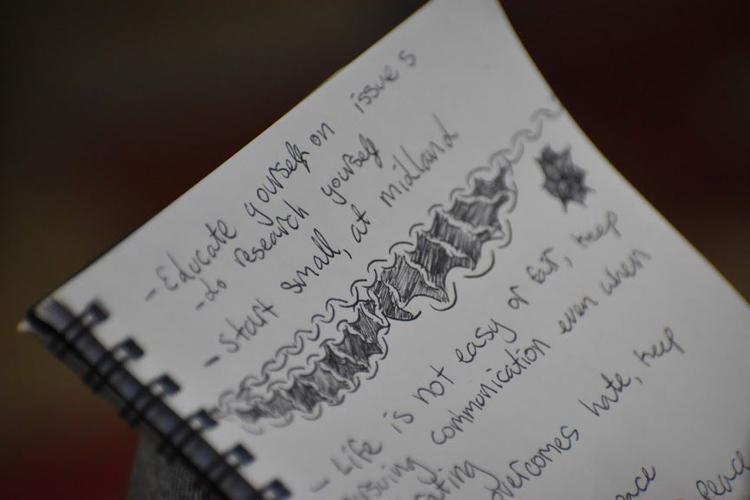 - Educate yourself on issues
- do research yourself
- start small, at midland
- Life is not easy or fair, keep
communication even when
overcomes hate, keep